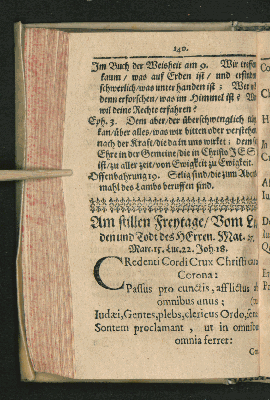 140.
Im Buch der Weisheit am 9. Wir
kaum / was auf Erden ist / und
schwerlich / was unter handen ist ;
denn erforschen / was im Himmel ist?
wil deine Rechte erfahren?
Eph. 3. Dem aber / der überschwenglich
kan / über alles / was wir bitten oder
nach der Kraft / die da in uns wircket ;
Ehre in der Gemeine / die in Christo
ist / zu aller zeit / von Ewigkeit zu Ewigkeit.
Offenbahrung 19. Selig sind / die zum
mahl des Lambs beruffen sind.
Am stillen Freytage / Vom
den und Todt des HErren. Mat.
Marc. 15. Luc. 22. Joh. 18.
CRedenti Cordi Crux Christi
Corona:
Passus pro cunctis, afflictus
omnibus unus;
Iudæi, Gentes, plebs, clericus Ordo,
Sontem proclamant, ut in
omnia ferret: